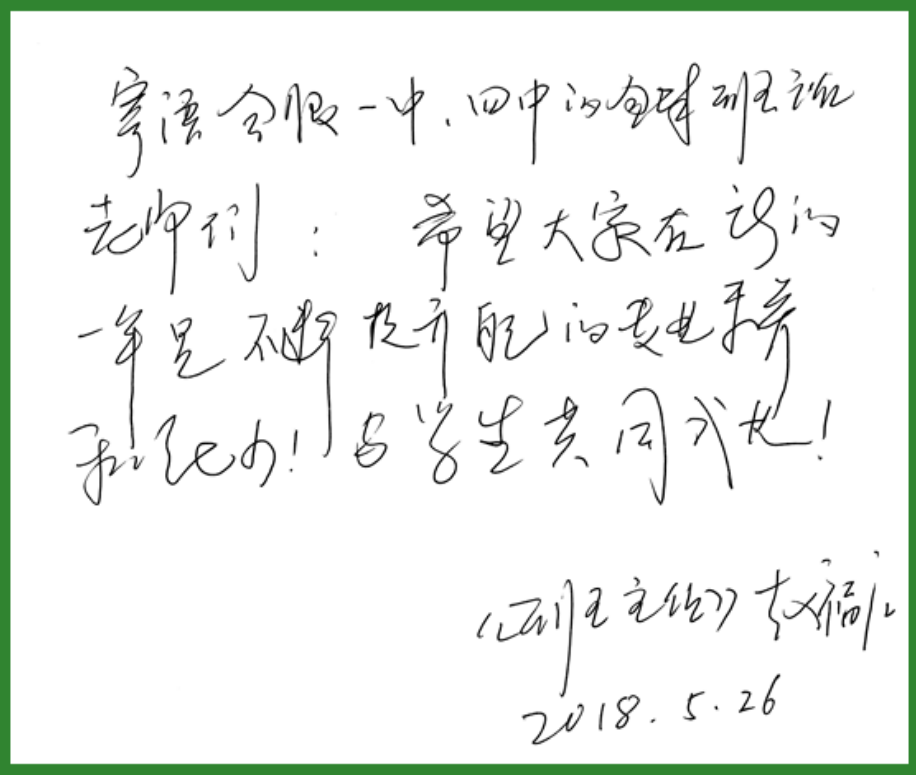 寄语合肥一中、四中的全体班主任
老师们： 希望大家在新的
一年里不断提升自己的专业素养
和能力！与学生共同成长！
《班主任》赵福江
2018.5.26